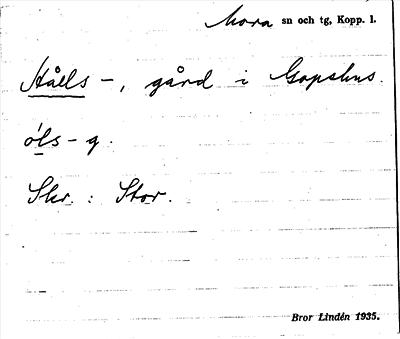 Mora sn och tg, Kopp. l.
Ståls -, gård i Gopshus.
óls - g.
Skr. : Stor.
Bror Lindén 1935.